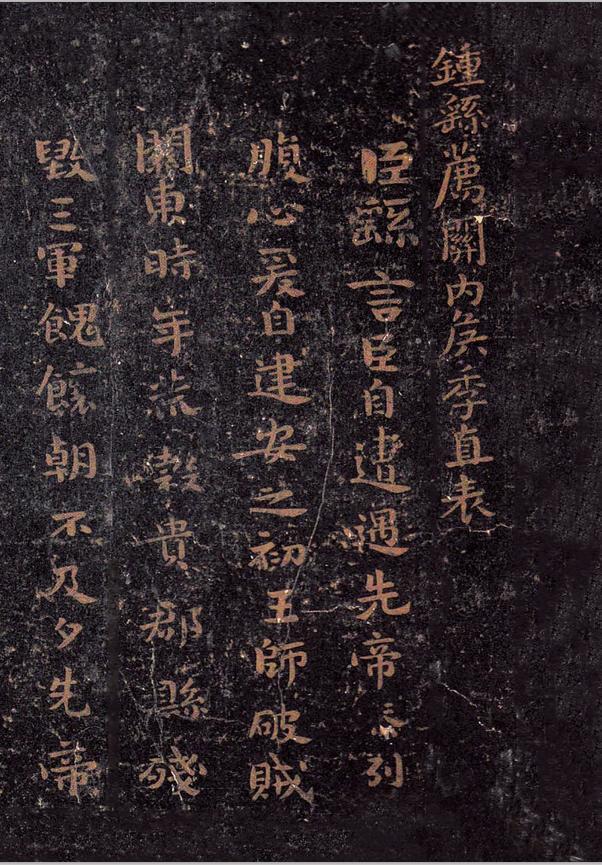 鍾繇薦關內矦季直表
臣繇言臣自遭遇先帝忝列
腹心爰自建安之初王師破賊
關東時年荒穀貴郡縣殘
毀三軍餽饟朝不及夕先帝